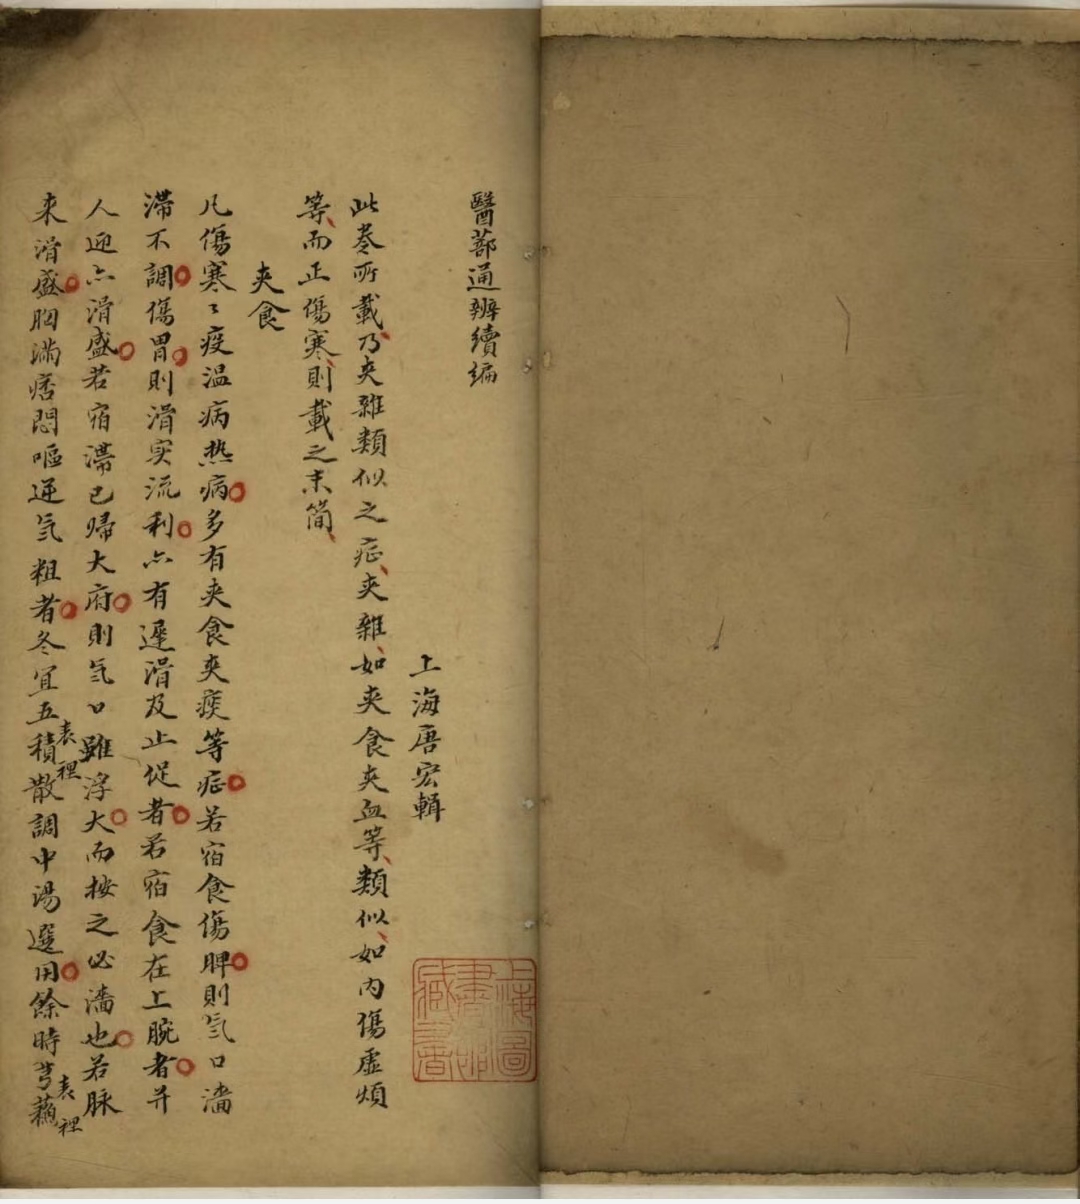 醫鄯通辨續編
上海唐宏輯
此卷所載乃夾雜類似之症夾雜如夾食夾血等類似如內傷虛煩
等而正傷寒則載之末簡
夾食
凡傷寒〻疫温病热病多有夾食夾痰等症若宿食傷脾則氣口濇
滯不調傷胃則滑实流利亦有遲滑及止促者若宿食在上腕者并
人迎亦滑盛若宿滯已歸大府則氣口雖浮大而按之必濇也若脉
来滑盛胸满痞悶嘔逆氣粗者冬宜五積散調中湯選用餘時芎蘓
表裡
表裡
上海圖書館藏書